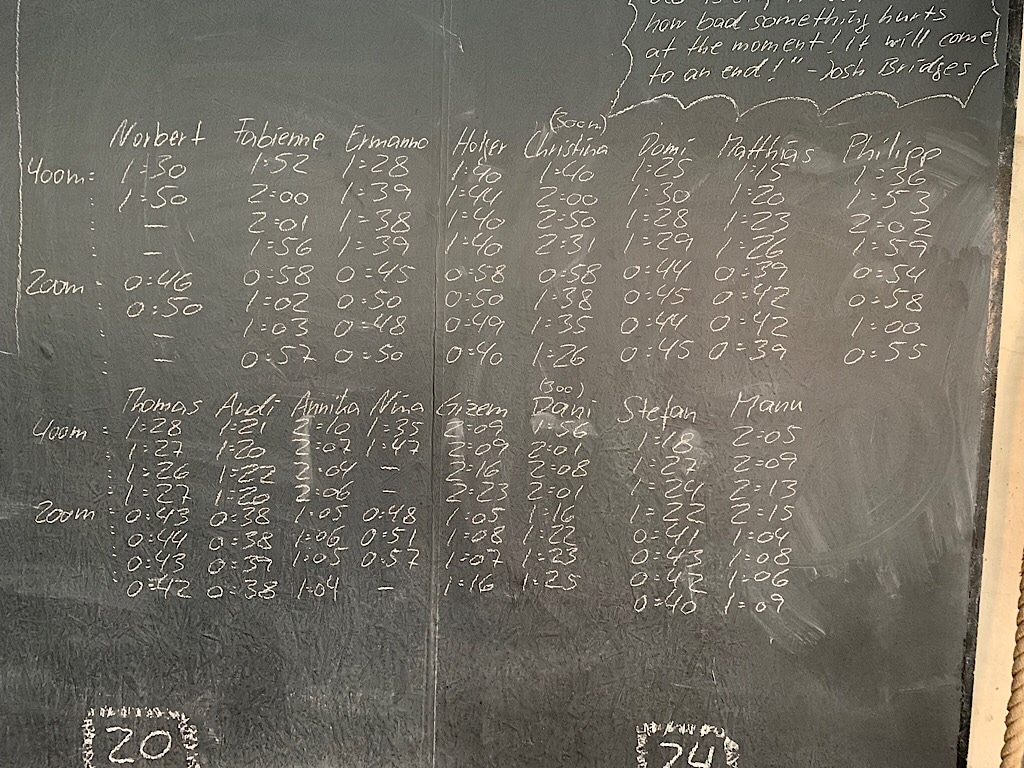 how bad something hurts
at the moment! It will come
to an end!" - Josh Bridges
(300m)
Norbert Fabienne Ermanno Holger Christina Domi Matthias Philipp
400m: 1:30 1:52 1:28 1:40 1:40 1:25 1:15 1:36
: 1:50 2:00 1:39 1:44 2:00 1:30 1:20 1:53
: - 2:01 1:38 1:40 2:50 1:28 1:23 2:02
: - 1:56 1:39 1:40 2:31 1:29 1:26 1:59
200m: 0:46 0:58 0:45 0:58 0:58 0:44 0:39 0:54
: 0:50 1:02 0:50 0:50 1:38 0:45 0:42 0:58
: - 1:03 0:48 0:49 1:35 0:44 0:42 1:00
: - 0:57 0:50 0:40 1:26 0:45 0:39 0:55
(300)
Thomas Andi Annika Nina Gizem Dani Stefan Manu
400m: 1:28 1:21 2:10 1:35 2:09 1:56 1:18 2:05
: 1:27 1:20 2:07 1:47 2:09 2:01 1:27 2:09
: 1:26 1:22 2:04 - 2:16 2:08 1:24 2:13
: 1:27 1:20 2:06 - 2:23 2:01 1:22 2:15
200m: 0:43 0:38 1:05 0:48 1:05 1:16 0:41 1:04
: 0:44 0:38 1:06 0:51 1:08 1:22 0:43 1:08
: 0:43 0:37 1:05 0:57 1:07 1:23 0:42 1:06
: 0:42 0:38 1:04 - 1:16 1:25 0:40 1:09
20 24